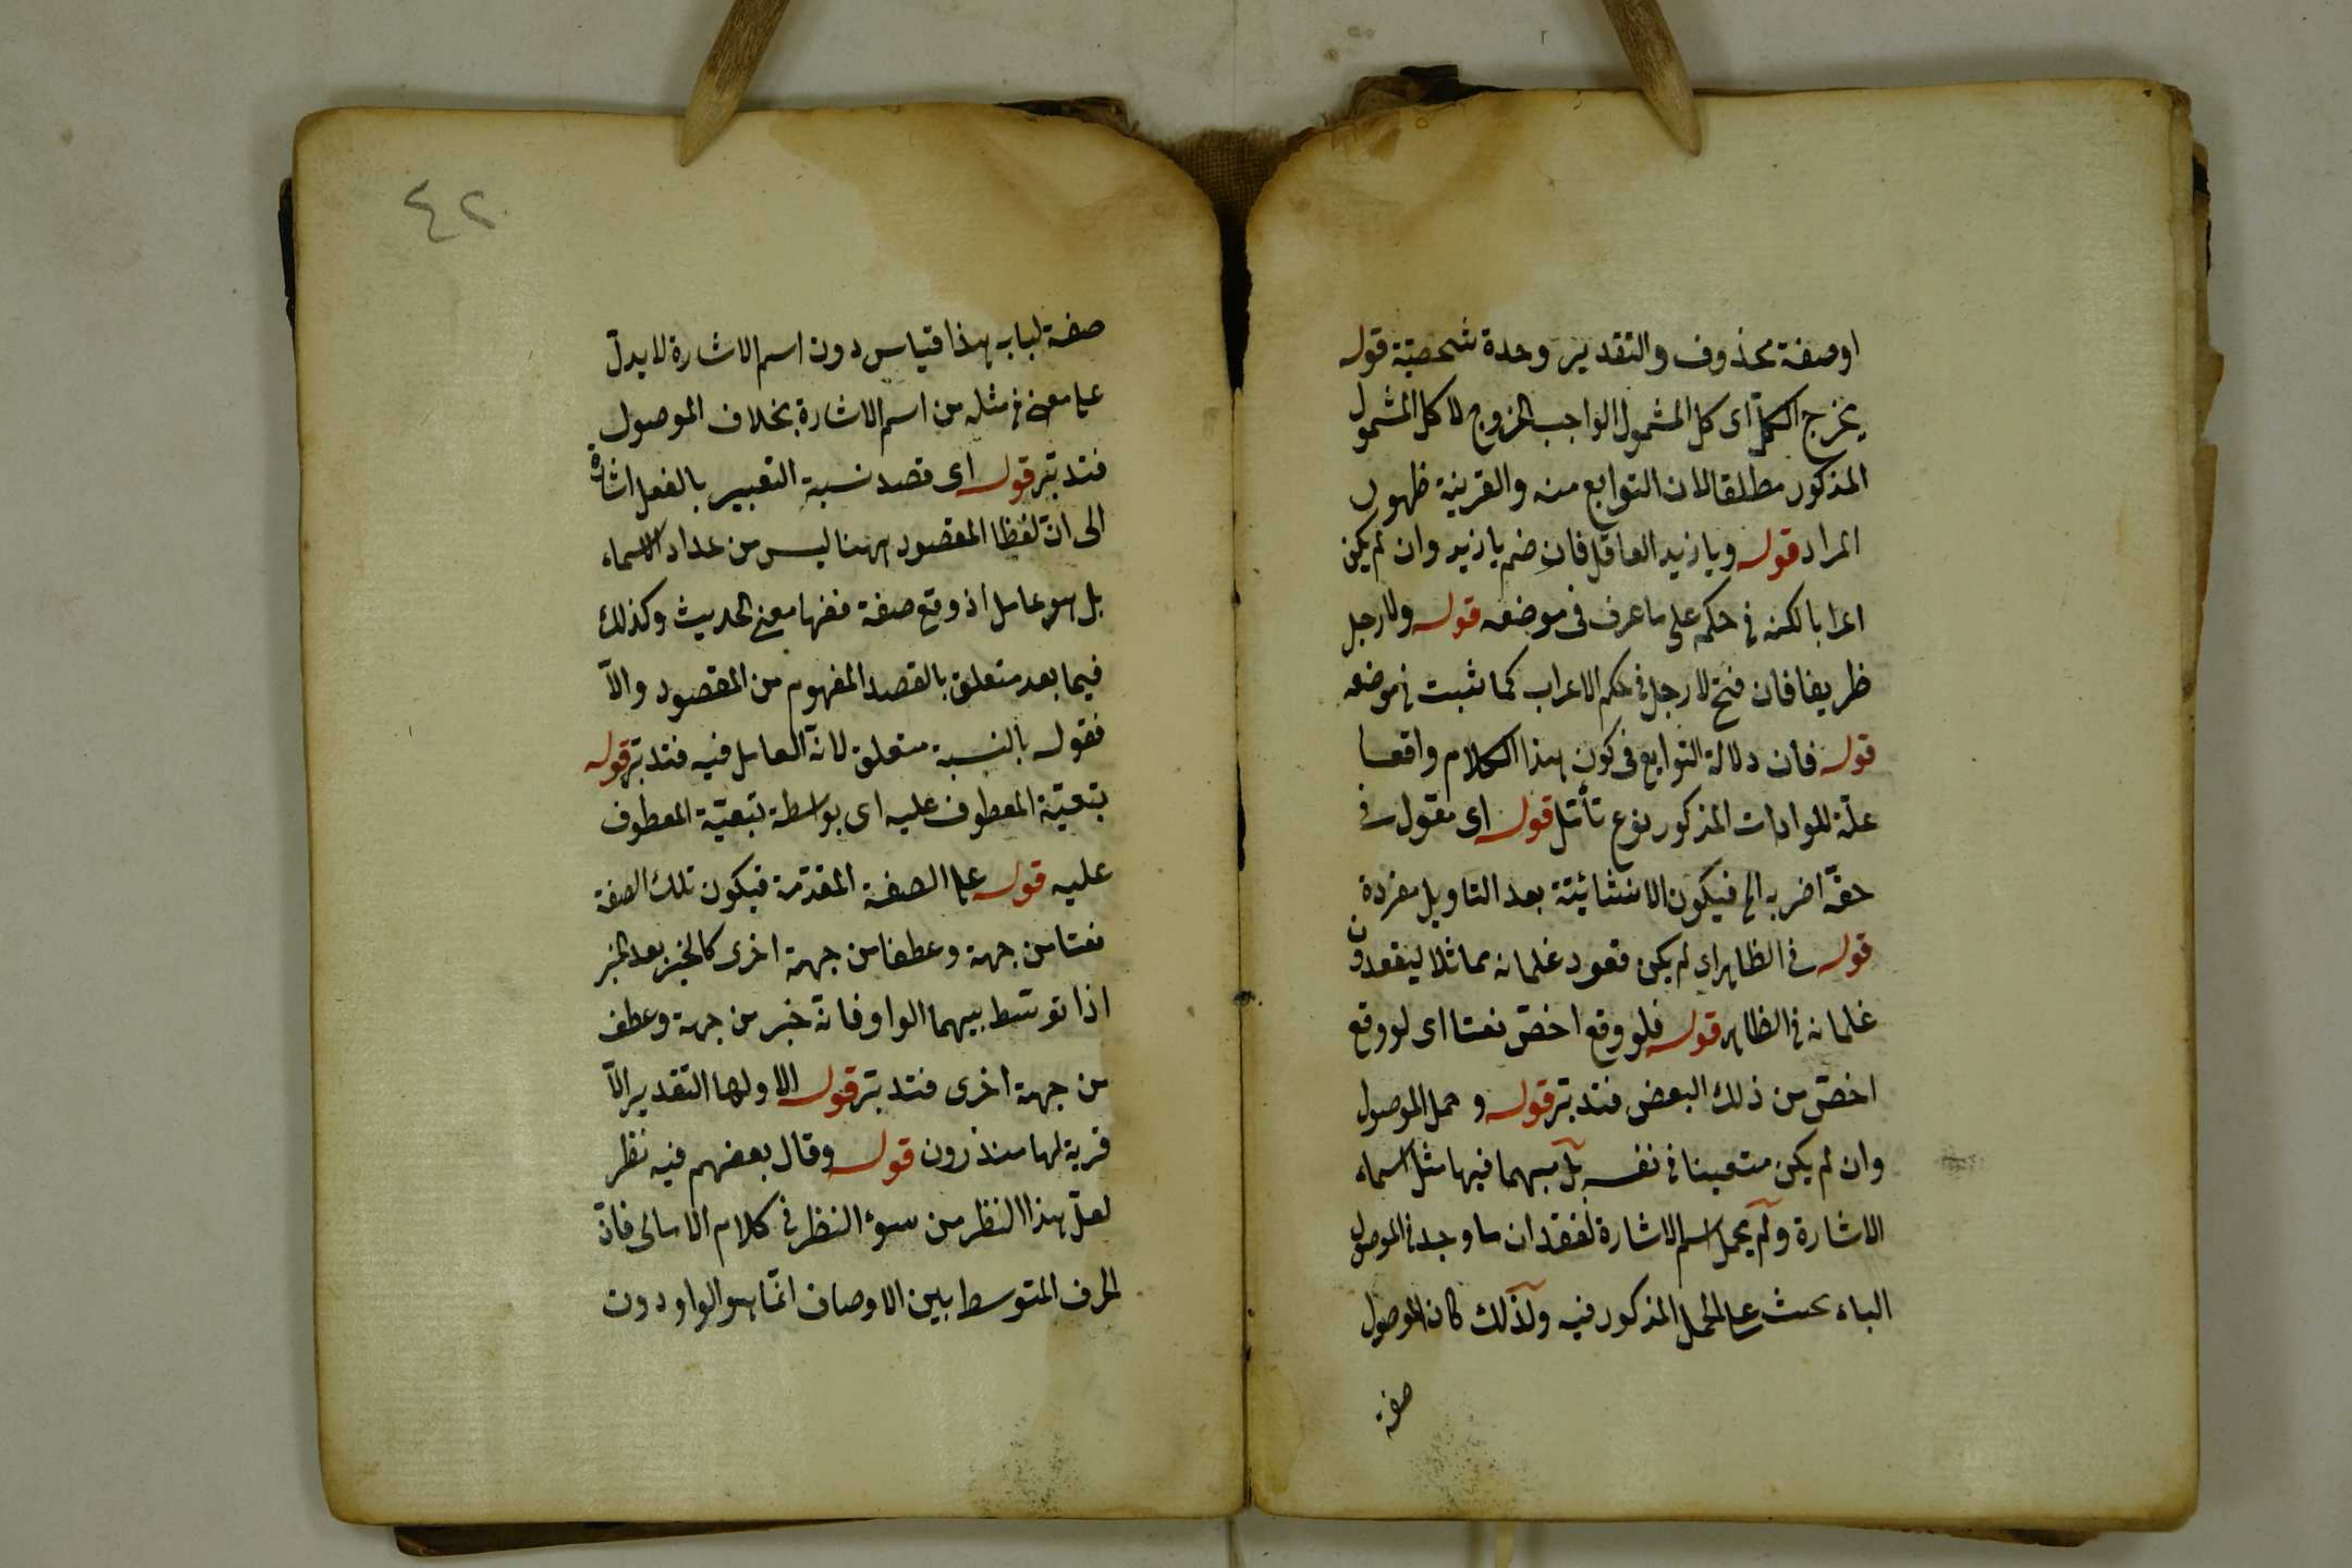 او صفة محذوف والتقدير وحدة شخصيّة قوله
يخرج الكلّ اى كل المشمول الواجب الخروج لا كل المشمول
المذكور مطلقا لان التوابع منه والقرينة ظهور
المراد قوله ويا زيد العاقل فان ضم يا زيد وان لم يكن
اعرابا لكنه فى حكمه على ما عرف فى موضعه قوله ولا رجل
ظريفا فان فتح لا رجل فى حكم الاعراب كما ثبت فى موضعه
قوله فان دلالة التوابع فى كون هذا الكلام واقعا
علّة للموادات المذكور نوع تأمّل قوله اى مقول فى
حقّه اضربه الخ فيكون الانشائيّة بعد التاويل مفردة
قوله فى الظاهر اى لم يكن قعود غلمانه مماثلا ليقعدون
غلمانه فى الظاهر قوله فلو وقع اخصّ نعتا اى لو وقع
اخصّ من ذلك البعض فتدبّر قوله و حمل الموصول
وان لم يكن متعينا فى نفسه بل مبهما فيها مثل اسماء
الاشارة ولم يحمل اسم الاشارة لفقدان ما وجد فى الموصول
الباء بحث على المحمل المذكور فيه ولذلك كان الموصول
صفة
٤٢
صفة لباب هذا قياس دون اسم الاشارة لا يدلّ
على معنى فى مثله من اسم الاشارة بخلاف الموصول
فتدبّر قوله اى قصد نسبة التعبير بالفعل اشارة
الى انّ لفظ المقصود ههنا ليس من عداد الاسماء
بل هو عامل اذ وقع صفة ففيها معنى الحديث وكذلك
فيما بعد متعلق بالقصد المفهوم من المقصود والّا
فقوله بالنسبة متعلق لانّه العامل فيه فتدبّر قوله
بتبعيّة المعطوف عليه اى بواسطة تبعيّة المعطوف
عليه قوله على الصفة المقدّمة فيكون تلك الصفة
نعتا من جهة وعطفا من جهة اخرى كالخبر بعد الخبر
اذا توسّط بينهما الواو فانّه خبر من جهة وعطف
من جهة اخرى فتدبّر قوله الا ولها التقدير الّا
قرية لها منذرون قوله وقال بعضهم فيه نظر
لعلّ هذا النظر من سوء النظر فى كلام الامالى فانّ
الحرف المتوسط بين الاوصاف انّما هو الواو دون